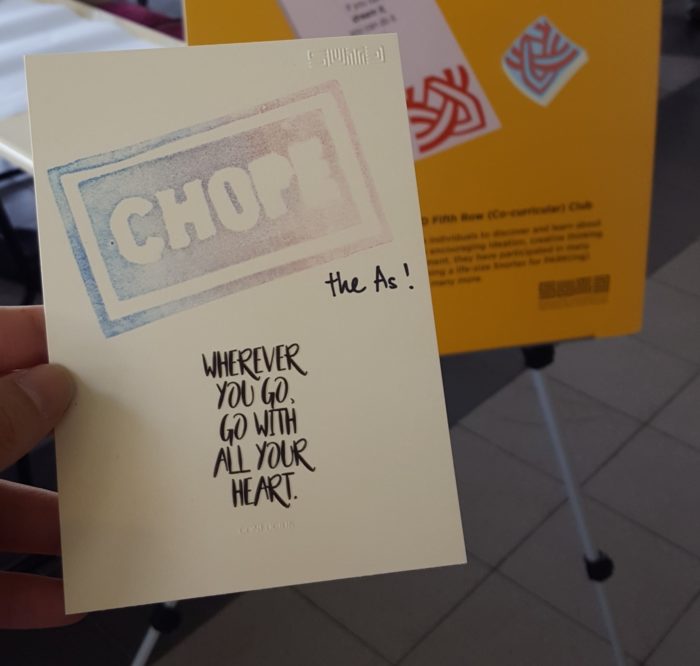 CHOPE
the As!
WHEREVER
YOU GO,
GO WITH
ALL YOUR
HEART.
CONFUCIUS
if you
dream it,
you can do it.
D Fifth Row (Co-curricular) Club
individuals to discover and learn about
encouraging ideation, creative thinking
ment, they have participated in many
ng a life-size
many more.